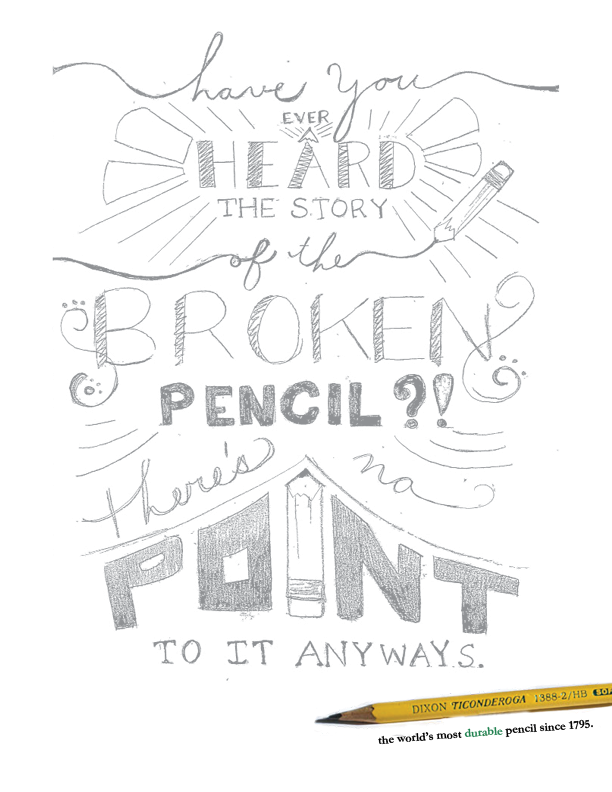 have you
EVER
HEARD
THE STORY
of the
BROKEN
PENCIL?!
there's no
POINT
TO IT ANYWAYS.
DIXON TICONDEROGA 1388-2/HB
the world's most durable pencil since 1795.